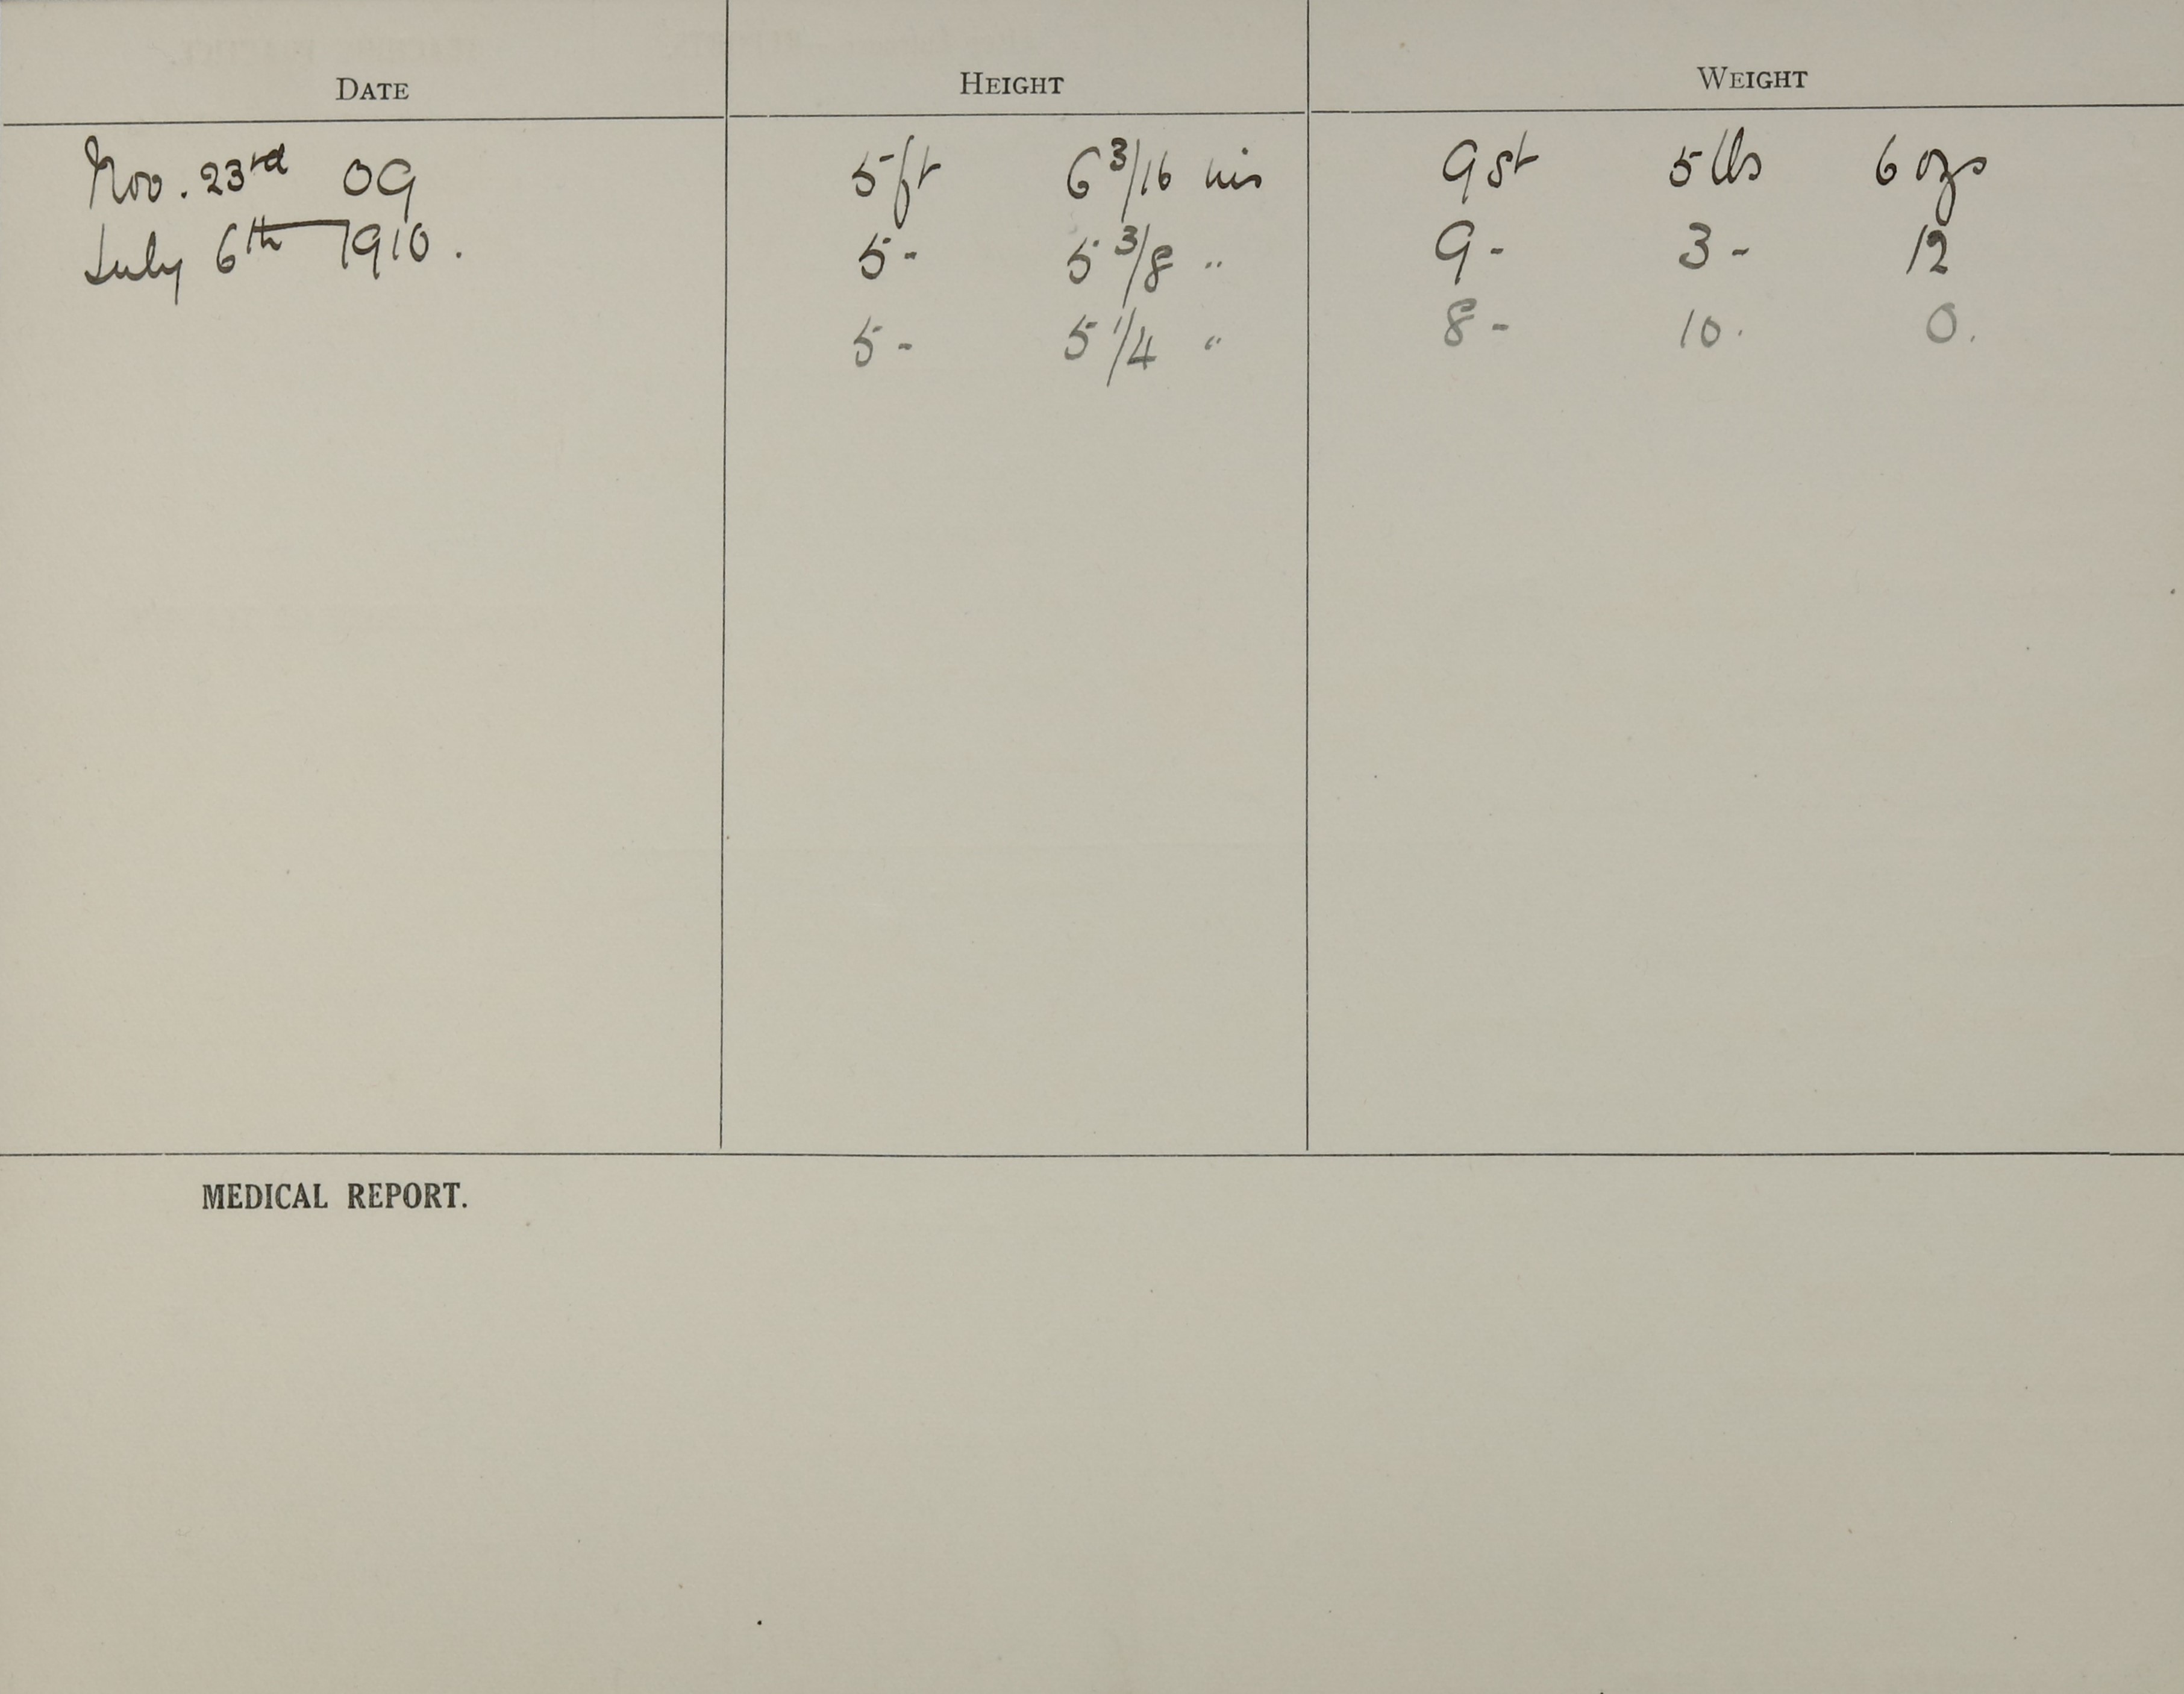 DATE HEIGHT WEIGHT
Nov. 23rd 09 5ft 6 3/16 ins 9 st 5 lbs 6 ozs
July 6th 1910. 5 - 5 3/8 " 9 - 3 - 12
5 - 5 1/4 " 8 - 10. 0.
MEDICAL REPORT.